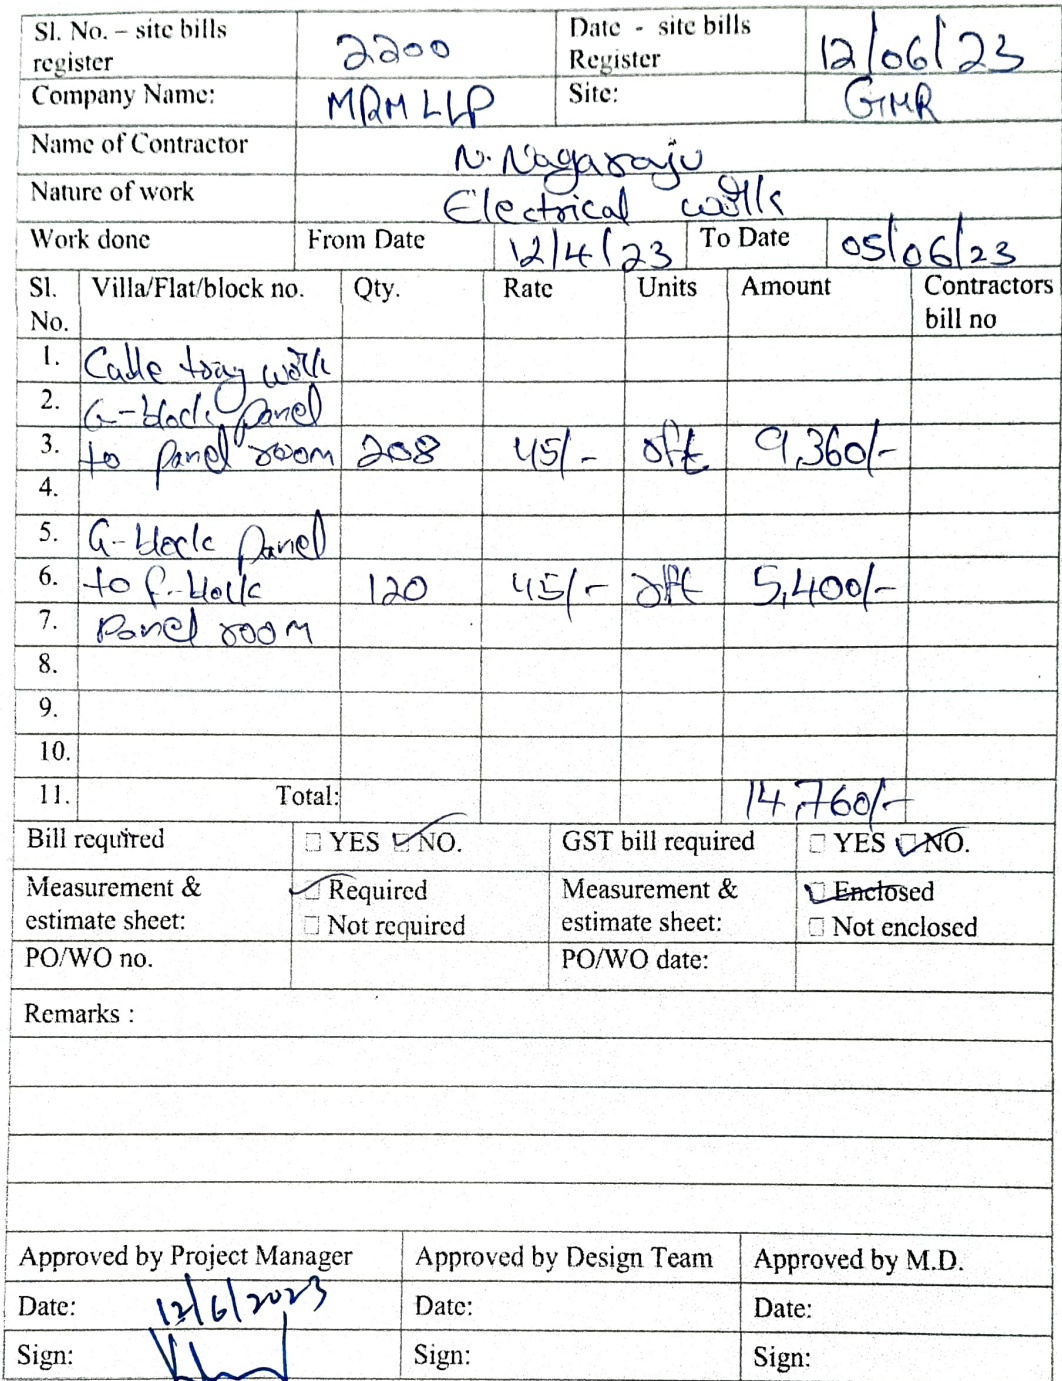 Sl. No. – site bills register 2200 Date - site bills Register 12/06/23
Company Name: MRM LLP Site: GMR
Name of Contractor N. Nagaraju
Nature of work Electrical work
Work done From Date 12/4/23 To Date 05/06/23
Sl. No. Villa/Flat/block no. Qty. Rate Units Amount Contractors bill no
1. Cable tray work
2. G-block panel
3. to panel room 208 45/- rft 9,360/-
4.
5. G-block panel
6. to F-block 120 45/- rft 5,400/-
7. panel room
8.
9.
10.
11. Total: 14,760/-
Bill required YES NO. GST bill required YES NO.
Measurement & estimate sheet: Required Not required Measurement & estimate sheet: Enclosed Not enclosed
PO/WO no. PO/WO date:
Remarks :
Approved by Project Manager Approved by Design Team Approved by M.D.
Date: 12/6/2023 Date: Date:
Sign: Sign: Sign: